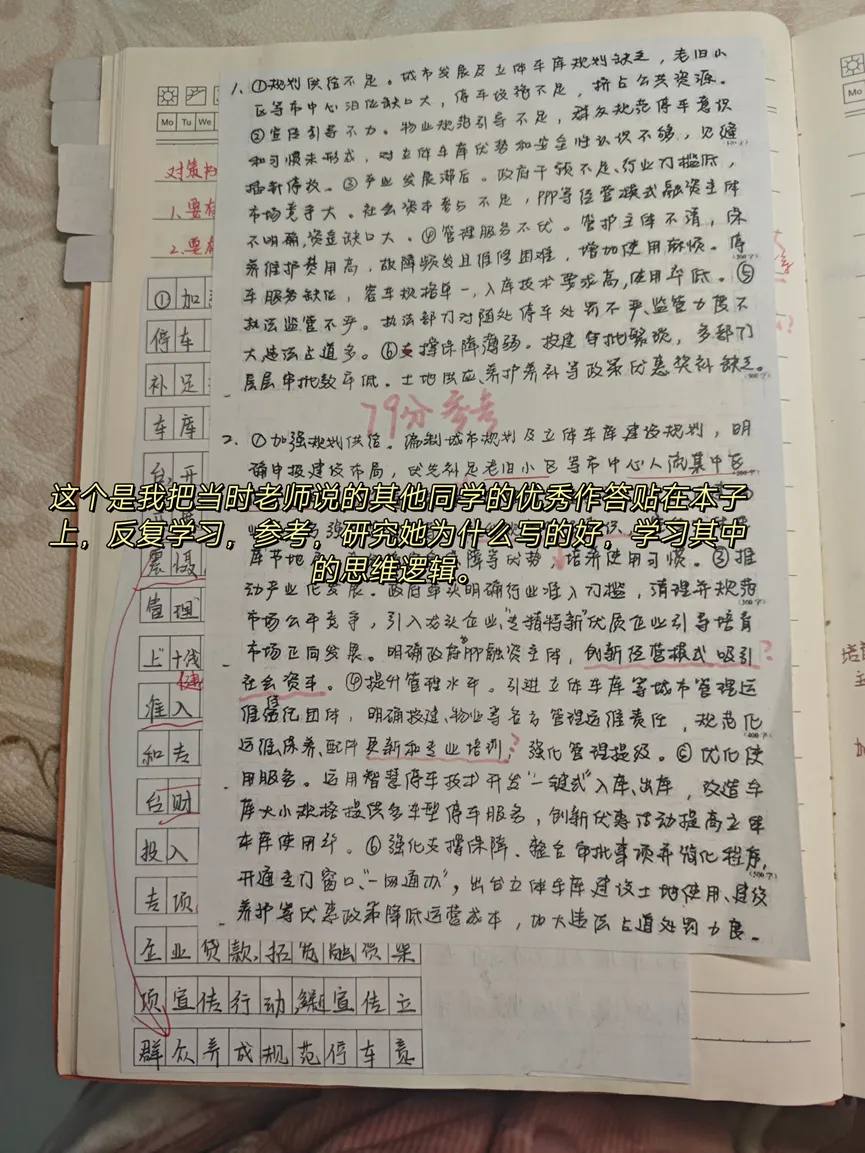 Mo Tu We
Mo
对策
1、要有
2、要
1、①规划供给不足。城市发展及立体车库规划缺乏，老旧小
区等市中心泊位缺口大，停车设施不足，挤占公共资源。
②宣传引导不力。物业规范引导不足，群众规范停车意识
和习惯未形成，对立体车库优势和安全性认识不够，见缝
插新停放。③产业发展滞后。政府干预不足、行业门槛低，
市场竞争大。社会资本参与不足，PPP等经营模式融资主体
不明确，资金缺口大。④管理服务不优。管护主体不清，保
养维护费用高，故障频发且维修困难，增加使用麻烦。停
车服务缺位，客车规格单一，入库技术要求高，使用率低。⑤
执法监管不严。执法部门对随处停车处罚不严、监管力度不
大，违法占道多。⑥支撑保障薄弱。投建审批繁琐，多部门
层层审批效率低。土地供应、养护养补等政策优惠奖补缺乏。
79分参考
2、①加强规划供给。编制城市规划及立体车库建设规划，明
确申报建设布局，优先补足老旧小区等市中心人流集中区
这个是我把当时老师说的其他同学的优秀作答贴在本子
上，反复学习，参考，研究她为什么写的好，学习其中
的思维逻辑。
库节地 障等优势，培养使用习惯。③推
动产业化发展。政府牵头明确行业准入门槛，清理并规范
市场公平竞争，引入龙头企业、“专精特新”优质企业引导培育
市场正向发展。明确政府PPP融资主体，创新经营模式吸引?
社会资本。④提升管理水平。引进立体车库等城市管理运
维团体，明确投建、物业等各方管理运维责任，规范化
运维、保养、配件更新和专业培训，?强化管理提级。⑤优化使
用服务。运用智慧停车技术开发“一键式”入库、出库，改造车
库大小规格提供多车型停车服务，创新优惠活动提高立体
车库使用率。⑥强化支撑保障。整合审批事项并简化程序，
开通专门窗口、“一网通办”，出台立体车库建设土地使用、建设
养护等优惠政策降低运营成本，加大违法占道处罚力度。
①加
停车
补足
车库
台开
震慑
管理
上+线
健
准入
和专
台财
投入
专项
企业贷款、拓宽融资渠
项宣传行动，宣传立
群众养成规范停车意